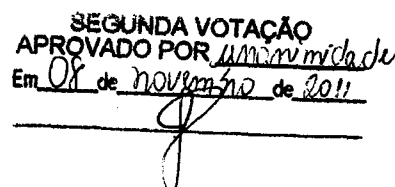 SEGUNDA VOTAÇÃO
APROVADO POR unanimidade
Em 08 de novembro de 2011